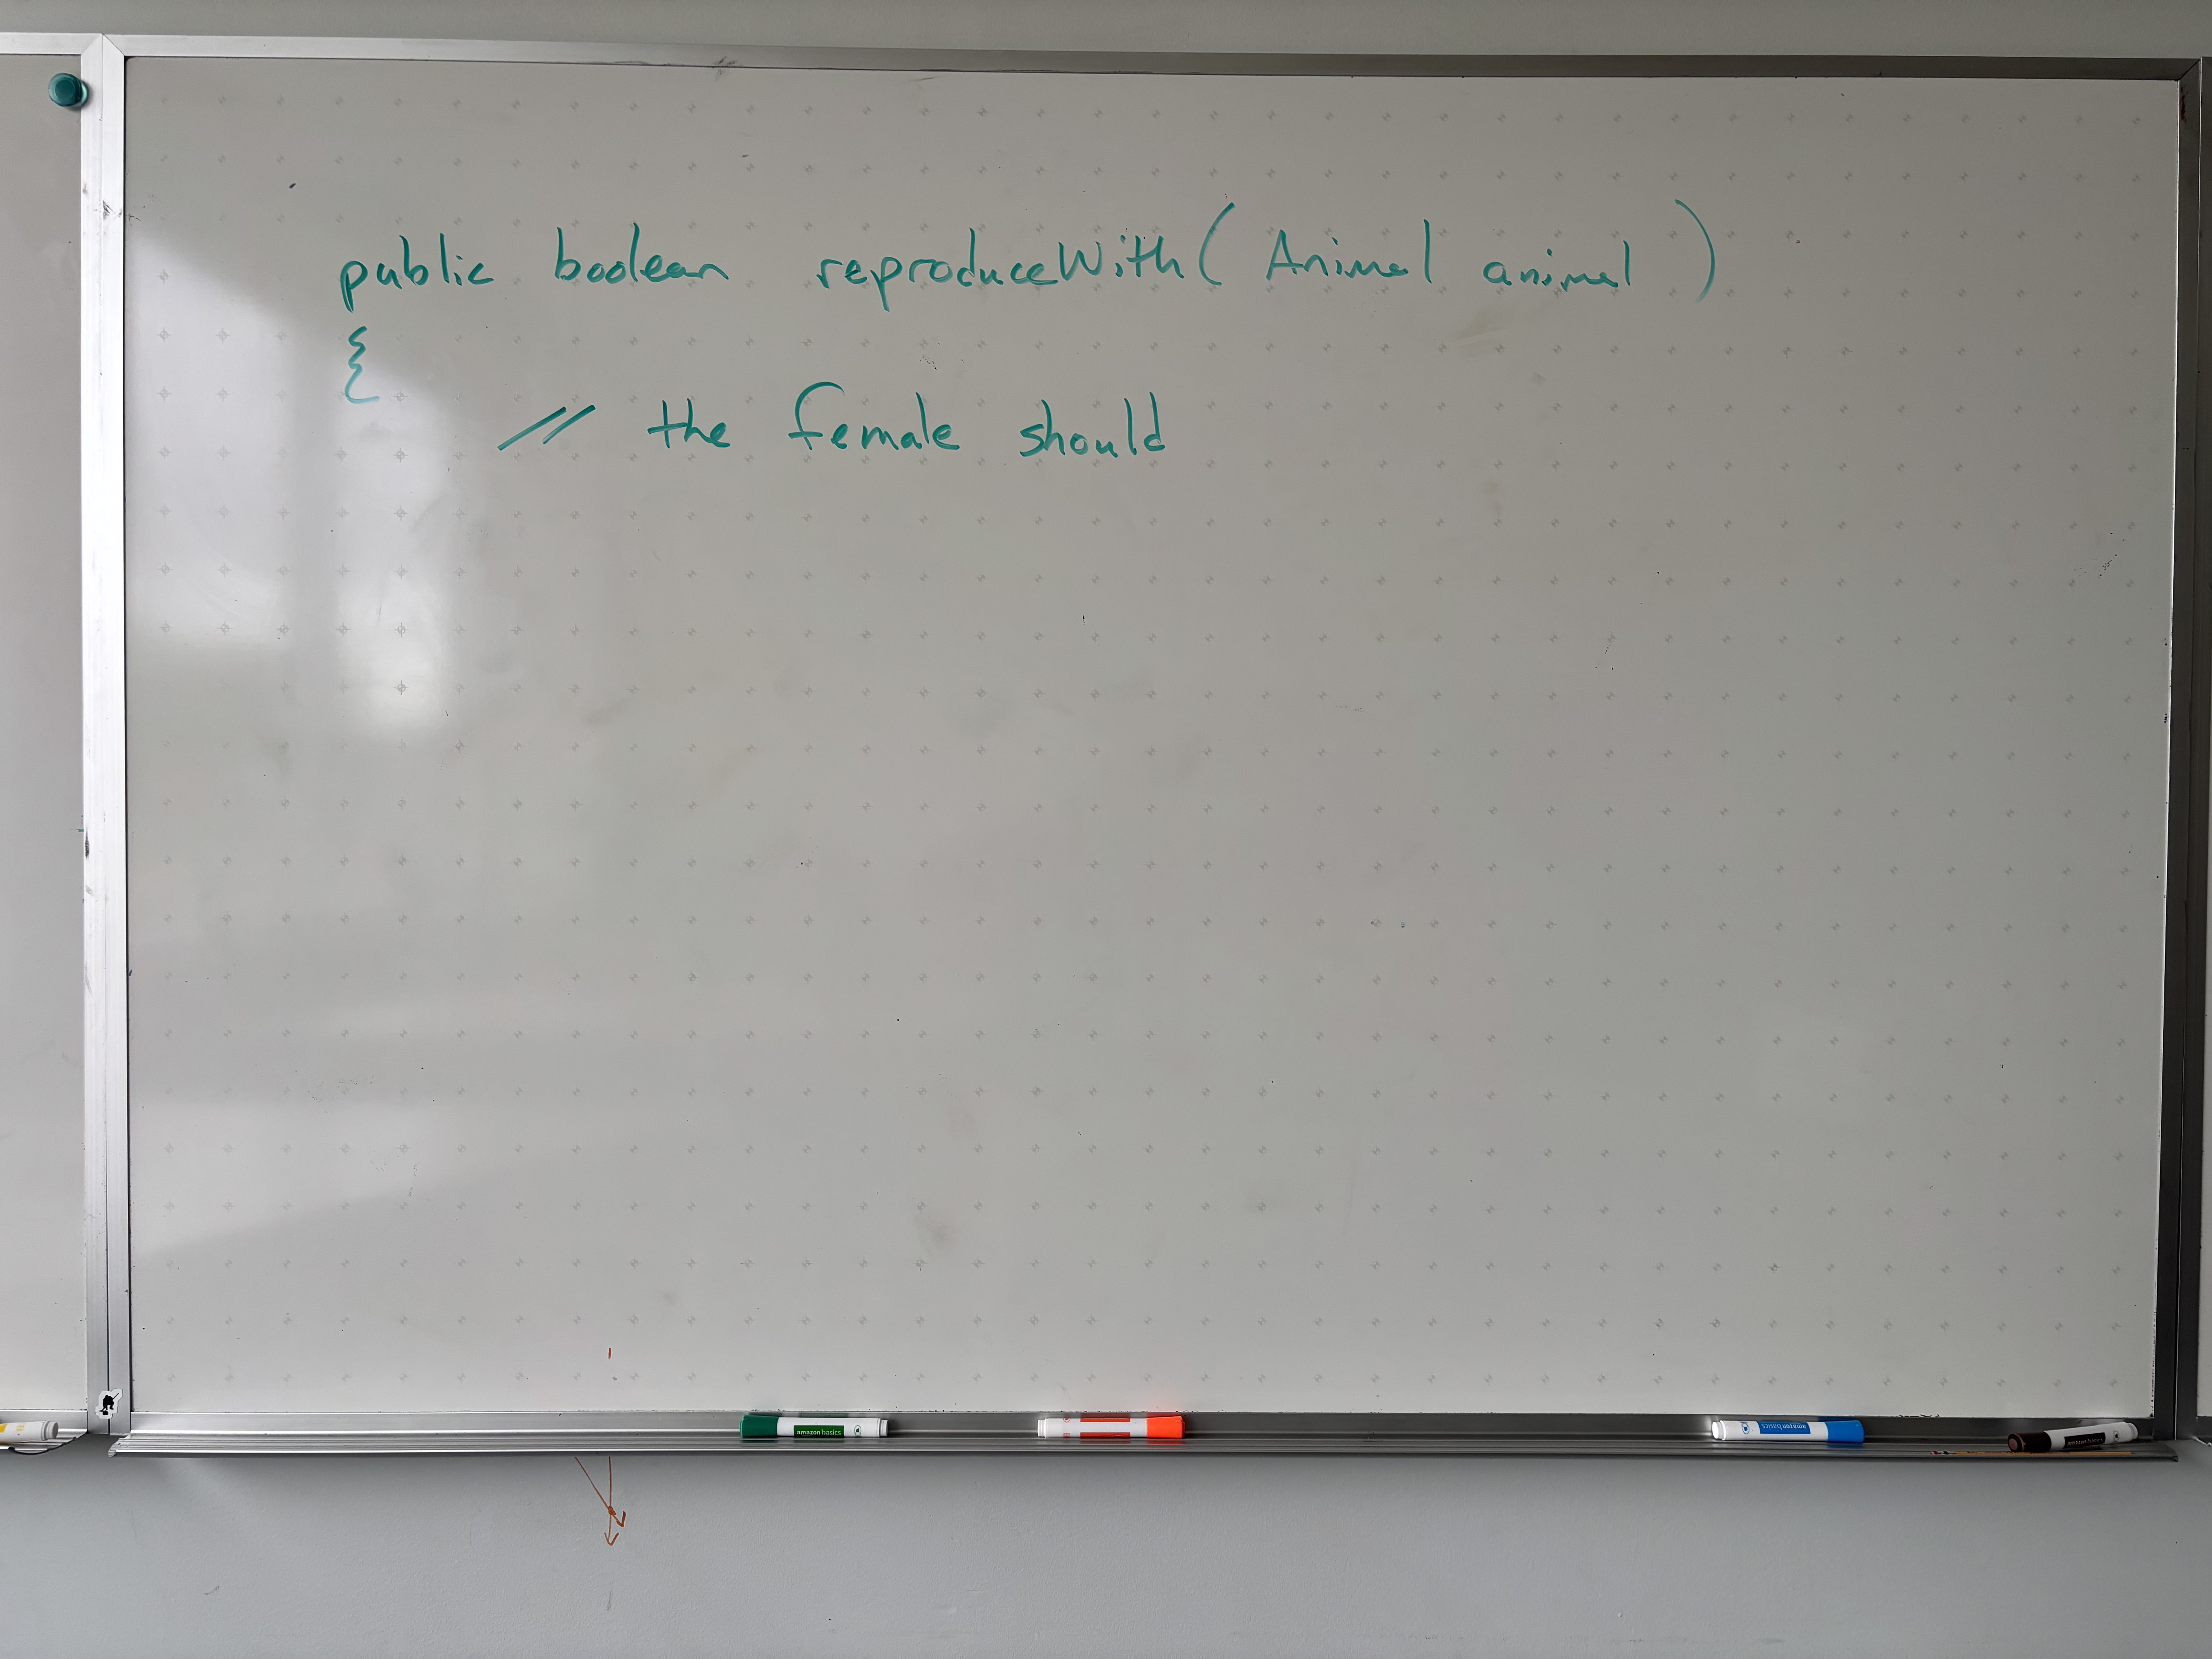 public boolean reproduceWith( Animal animal )
{
// the female should
amazon basics
amazon basics
amazon basics